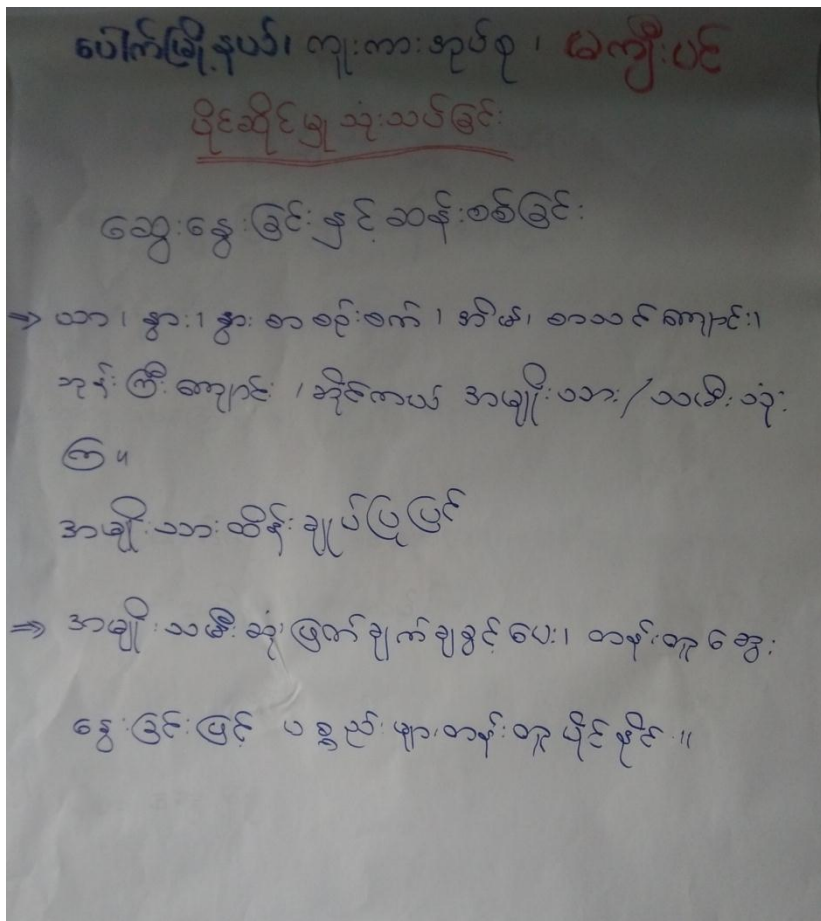 ပေါက်မြို့နယ်၊ ကူးကားအုပ်စု ၊ မကျီးပင်
ပိုင်ဆိုင်မှု သုံးသပ်ခြင်း
ဆွေးနွေးခြင်းနှင့်ဆန်းစစ်ခြင်း
⇒ ယာ၊ နွား၊ နွားစာစဉ်းစက်၊ အိမ်၊ စာသင်ကျောင်း၊
ဘုန်းကြီးကျောင်း၊ ဆိုင်ကယ် အမျိုးသား/သမီးသုံး
ကြ။
အမျိုးသားထိန်းချုပ်ပြုပြင်
⇒ အမျိုးသမီးဆုံးဖြတ်ချက်ချခွင့်ပေး၊ တန်းတူဆွေး
နွေးခြင်းဖြင့် ပစ္စည်းများတန်းတူပိုင်နိုင်။